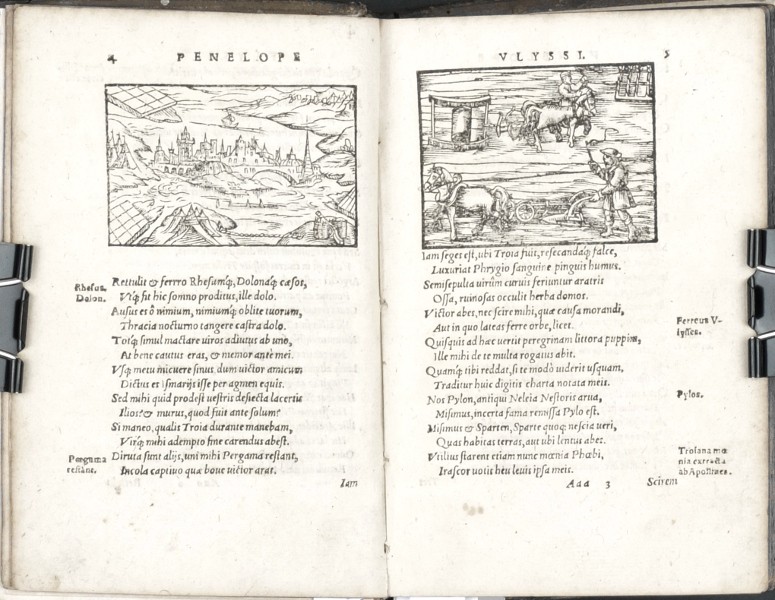 4 PENELOPE
Rhesus.
Dolon.
Rettulit & ferrro Rhesumq́;, Dolonaq́; cæsos,
Vtq́; sit hic somno proditus, ille dolo.
Ausus es ô nimium, nimiumq́; oblite tuorum,
Thracia nocturno tangere castra dolo.
Totq́; simul mactare viros adiutus ab uno,
At bene cautus eras, & memor ante mei.
Vsq́; metu micuere sinus, dum victor amicum
Dictus es Ismarijs isse per agmen equis.
Sed mihi quid prodest uestris disiecta lacertis
Ilios? & murus, quod fuit ante solum?
Si maneo, qualis Troia durante manebam,
Virq́; mihi adempto fine carendus abest.
Pergama
restant.
Diruta sunt alijs, uni mihi Pergama restant,
Incola captiuo quæ boue uictor arat.
Iam
VLYSSI. 5
Iam seges est, ubi Troia fuit, resecandaq́; falce,
Luxuriat Phrygio sanguine pinguis humus.
Semisepulta uirûm curuis feriuntur aratris
Ossa, ruinosas occulit herba domos.
Victor abes, nec scire mihi, quæ causa morandi,
Ferreus V-
lysses.
Aut in quo lateas ferre orbe, licet.
Quisquis ad hæc vertit peregrinam littora puppim,
Ille mihi de te multa rogatus abit.
Quamq́; tibi reddat, si te modò uiderit usquam,
Traditur huic digitis charta notata meis.
Pylos.
Nos Pylon, antiqui Neleia Nestoris arua,
Misimus, incerta fama remissa Pylo est.
Misimus & Sparten, Sparte quoq; nescia ueri,
Quas habitas terras, aut ubi lentus abes.
Troiana mœ
nia extructa
ab Apolline.
Vtilius starent etiam nunc mœnia Phœbi,
Irascor uotis heu leuis ipsa meis.
Aaa 3 Scirem